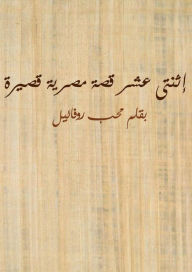 إثنتى عشر قصة مصرية قصيرة
بقلم محب روفائيل